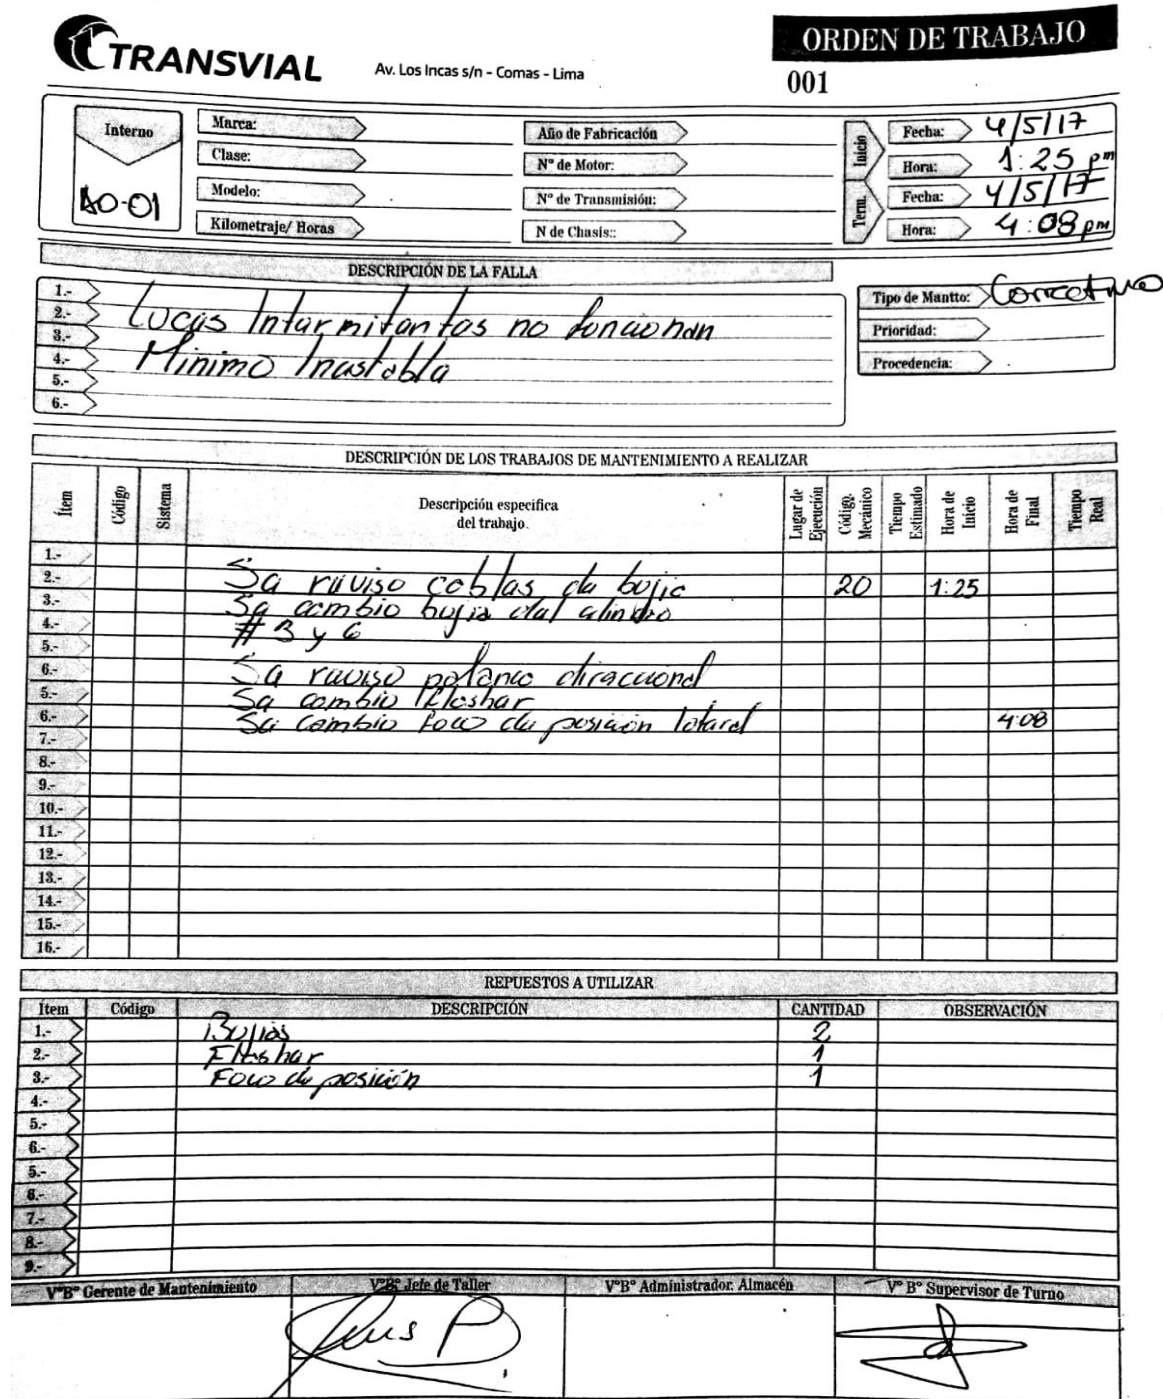 TRANSVIAL
Av. Los Incas s/n - Comas - Lima
ORDEN DE TRABAJO
001
Interno
AO-01
Marca:
Clase:
Modelo:
Kilometraje/ Horas
Año de Fabricación
N° de Motor:
N° de Transmisión:
N de Chasis::
Inicio
Fecha: 4/5/17
Hora: 1:25 pm
Term.
Fecha: 4/5/17
Hora: 4:08 pm
DESCRIPCIÓN DE LA FALLA
1.-
2.- Luces Intermitentes no funcionan
3.-
4.- Minimo Inestable
5.-
6.-
Tipo de Mantto: Correctivo
Prioridad:
Procedencia:
DESCRIPCIÓN DE LOS TRABAJOS DE MANTENIMIENTO A REALIZAR
Ítem Código Sistema Descripción especifica del trabajo. Lugar de Ejecución Código. Mecánico Tiempo Estimado Hora de Inicio Hora de Final Tiempo Real
1.-
2.- Se reviso cables de bujia 20 1:25
3.- Se cambio bujia del cilindro
4.- # 3 y 6
5.-
6.- Se reviso palanca direccional
5.- Se cambio Flasher
6.- Se cambio Foco de posición lateral 4:08
7.-
8.-
9.-
10.-
11.-
12.-
13.-
14.-
15.-
16.-
REPUESTOS A UTILIZAR
Ítem Código DESCRIPCIÓN CANTIDAD OBSERVACIÓN
1.- Bujias 2
2.- Flasher 1
3.- Foco de posición 1
4.-
5.-
6.-
5.-
6.-
7.-
8.-
9.-
V°B° Gerente de Mantenimiento V°B° Jefe de Taller V°B° Administrador. Almacén V° B° Supervisor de Turno
Luis P